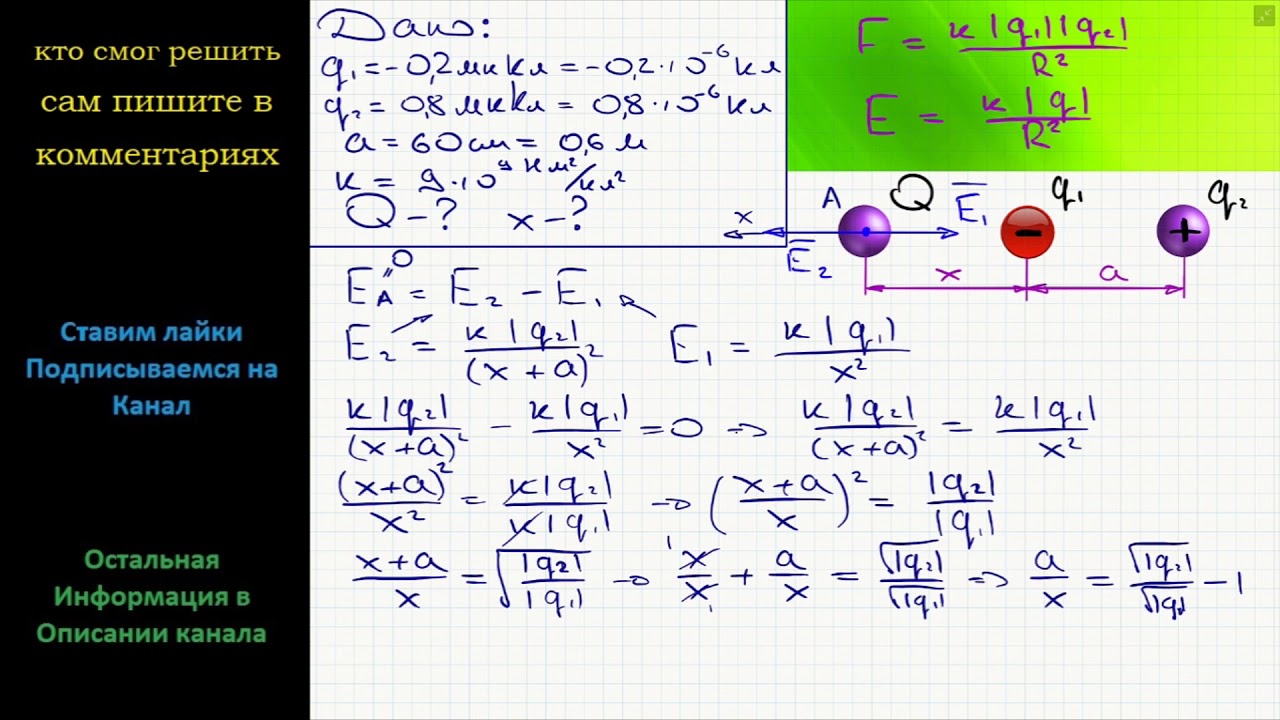 кто смог решить
сам пишите в
комментариях
Ставим лайки
Подписываемся на
Канал
Остальная
Информация в
Описании канала
Дано:
q₁ = -0,2 мкКл = -0,2·10⁻⁶ Кл
q₂ = 0,8 мкКл = 0,8·10⁻⁶ Кл
a = 60 см = 0,6 м
к = 9·10⁹ Н м²/Кл²
Q - ? x - ?
F = к |q₁| |q₂| / R²
E = к |q| / R²
A Q E₁ q₁ q₂
x E₂ - +
x a
0
E_A = E₂ - E₁
E₂ = к |q₂| / (x + a)² E₁ = к |q₁| / x²
к |q₂| / (x+a)² - к |q₁| / x² = 0 → к |q₂| / (x+a)² = к |q₁| / x²
(x+a)² / x² = к |q₂| / к |q₁| → ((x+a) / x)² = |q₂| / |q₁|
(x+a) / x = √(|q₂| / |q₁|) → x / x + a / x = √|q₂| / √|q₁| → a / x = √|q₂| / √|q₁| - 1